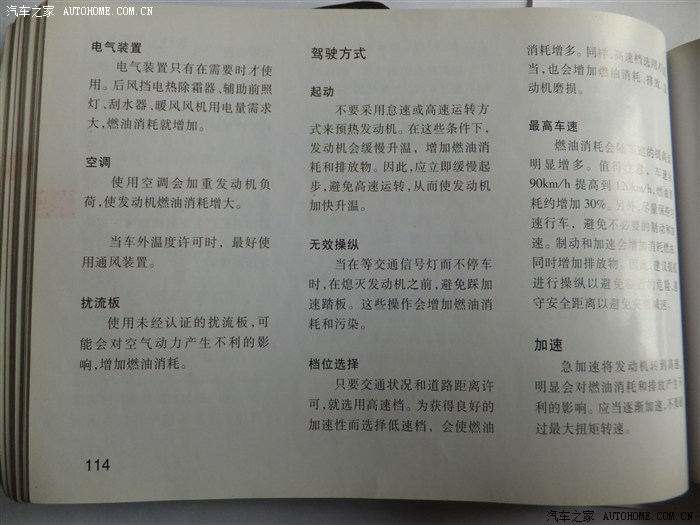 汽车之家 AUTOHOME.COM.CN
电气装置
电气装置只有在需要时才使
用。后风挡电热除霜器、辅助前照
灯、刮水器、暖风风机用电量需求
大,燃油消耗就增加。
空调
使用空调会加重发动机负
荷,使发动机燃油消耗增大。
当车外温度许可时，最好使
用通风装置。
扰流板
使用未经认证的扰流板,可
能会对空气动力产生不利的影
响,增加燃油消耗。
114
驾驶方式
起动
不要采用怠速或高速运转方
式来预热发动机。在这些条件下,
发动机会缓慢升温，增加燃油消
耗和排放物。因此,应立即缓慢起
步,避免高速运转,从而使发动机
加快升温。
无效操纵
当在等交通信号灯而不停车
时,在熄灭发动机之前,避免踩加
速踏板。这些操作会增加燃油消
耗和污染。
档位选择
只要交通状况和道路距离许
可,就选用高速档。为获得良好的
加速性而选择低速档，会使燃油
消耗增多。同样,高速档选用不
当，也会增加燃油消耗,排放
动机磨损。
最高车速
燃油消耗会随车速的提高
明显增多。值得 车速
90km/h 提高到 120km/h,燃油
耗约增加 30%。另外,尽量保持
速行车，避免不必要的制动和加
速。制动和加速会增加消耗燃
同时增加排放物。因此,建议
进行操纵以避免 危险,
守安全距离以避免 减速。
加速
急加速将发动机转到高速
明显会对燃油消耗和排放产生不
利的影响。应当逐渐加速,不要
过最大扭矩转速。
汽车之家 AUTOHOME.COM.CN